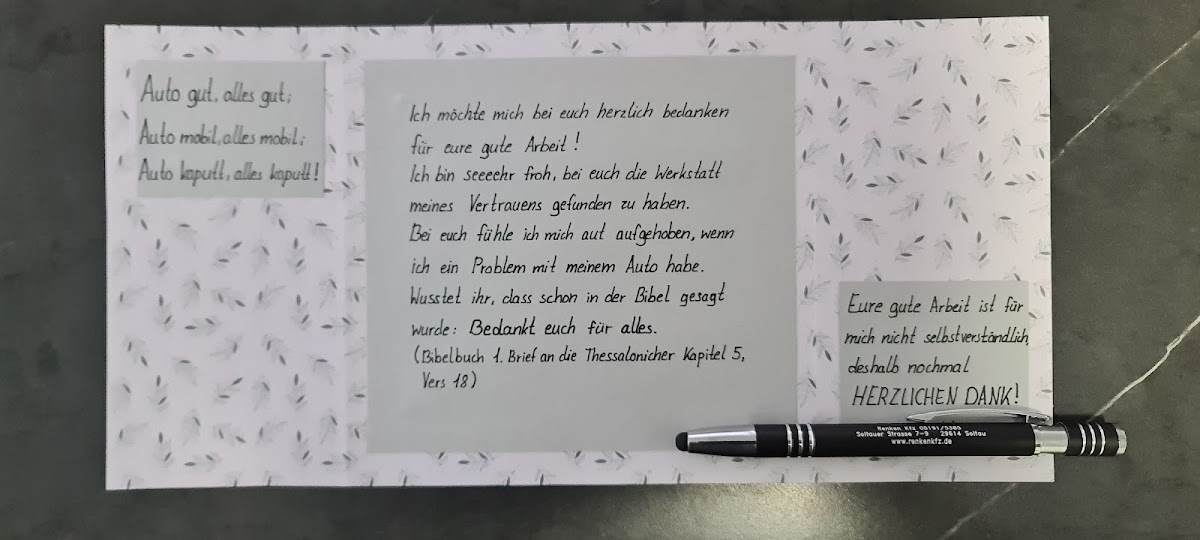 Auto gut, alles gut;
Auto mobil, alles mobil;
Auto kaputt, alles kaputt!
Ich möchte mich bei euch herzlich bedanken
für eure gute Arbeit!
Ich bin seeeehr froh, bei euch die Werkstatt
meines Vertrauens gefunden zu haben.
Bei euch fühle ich mich aut aufgehoben, wenn
ich ein Problem mit meinem Auto habe.
Wusstet ihr, dass schon in der Bibel gesagt
wurde: Bedankt euch für alles.
(Bibelbuch 1. Brief an die Thessalonicher Kapitel 5,
Vers 18)
Eure gute Arbeit ist für
mich nicht selbstverständlich,
deshalb nochmal
HERZLICHEN DANK!
Renken Kfz 05191/5385
Soltauer Strasse 7-9 29614 Soltau
www.renkenkfz.de